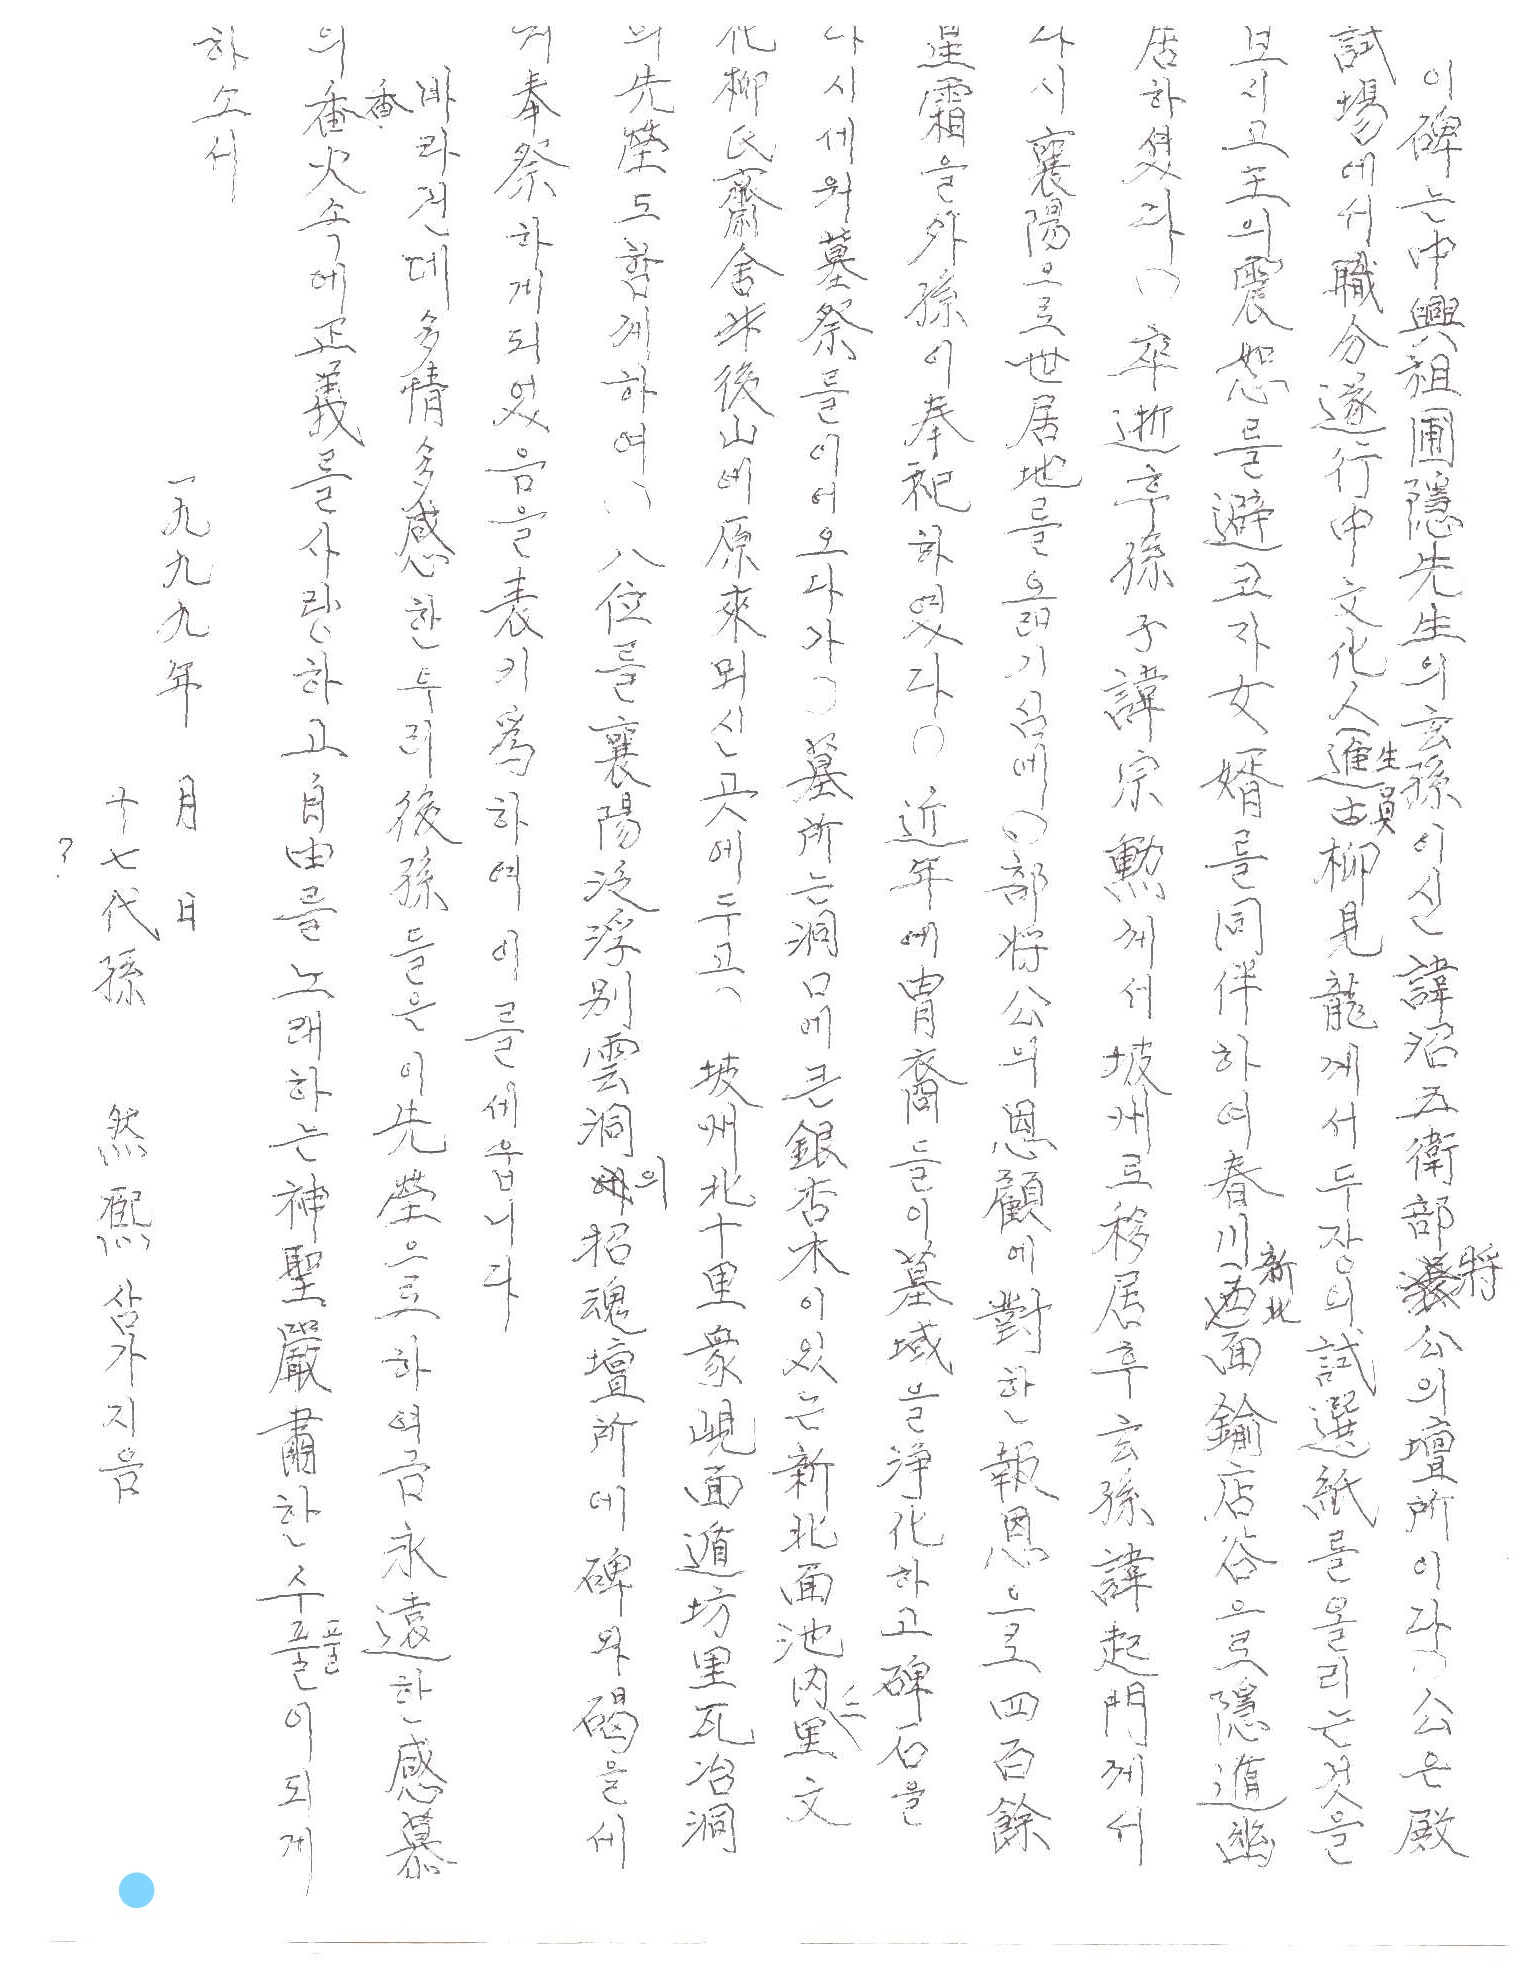 이碑는中興祖圃隱先生의玄孫이신 諱沼五衛部將公의壇所이다 公은殿
試場에서職分遂行中文化人進士生員柳見龍께서두장의試選紙를올리는것을
보시고主의震怒를避코자女婿를同伴하여春川西面新北鍮店谷으로隱遁幽
居하셨다 卒逝후孫子諱宗勳께서坡州로移居후玄孫諱起門께서
다시襄陽으로世居地를옮기심에 部將公의恩顧에對한報恩으로四百餘
星霜을外孫이奉祀하였다 近年에胄裔들이墓域을淨化하고碑石을
다시세워墓祭를이어오다가 墓所는洞口에큰銀杏木이있는新北面池内里文
化柳氏齋舍後山에原來뫼신곳에두고 坡州北十里衆峴面遁坊里瓦冶洞
의先塋도함께하여 八位를襄陽泛浮別雲洞의招魂壇所에碑와碣을세
거奉祭하게되었음을表키爲하여이를세웁니다
바라건데多情多感한우리後孫들은이先塋으로하여금永遠한感慕
의香火속에正義를사랑하고自由를노래하는神聖嚴肅한수풀이되게
하소서
一九九九年 月 日
十七代孫 然熙삼가지음
?